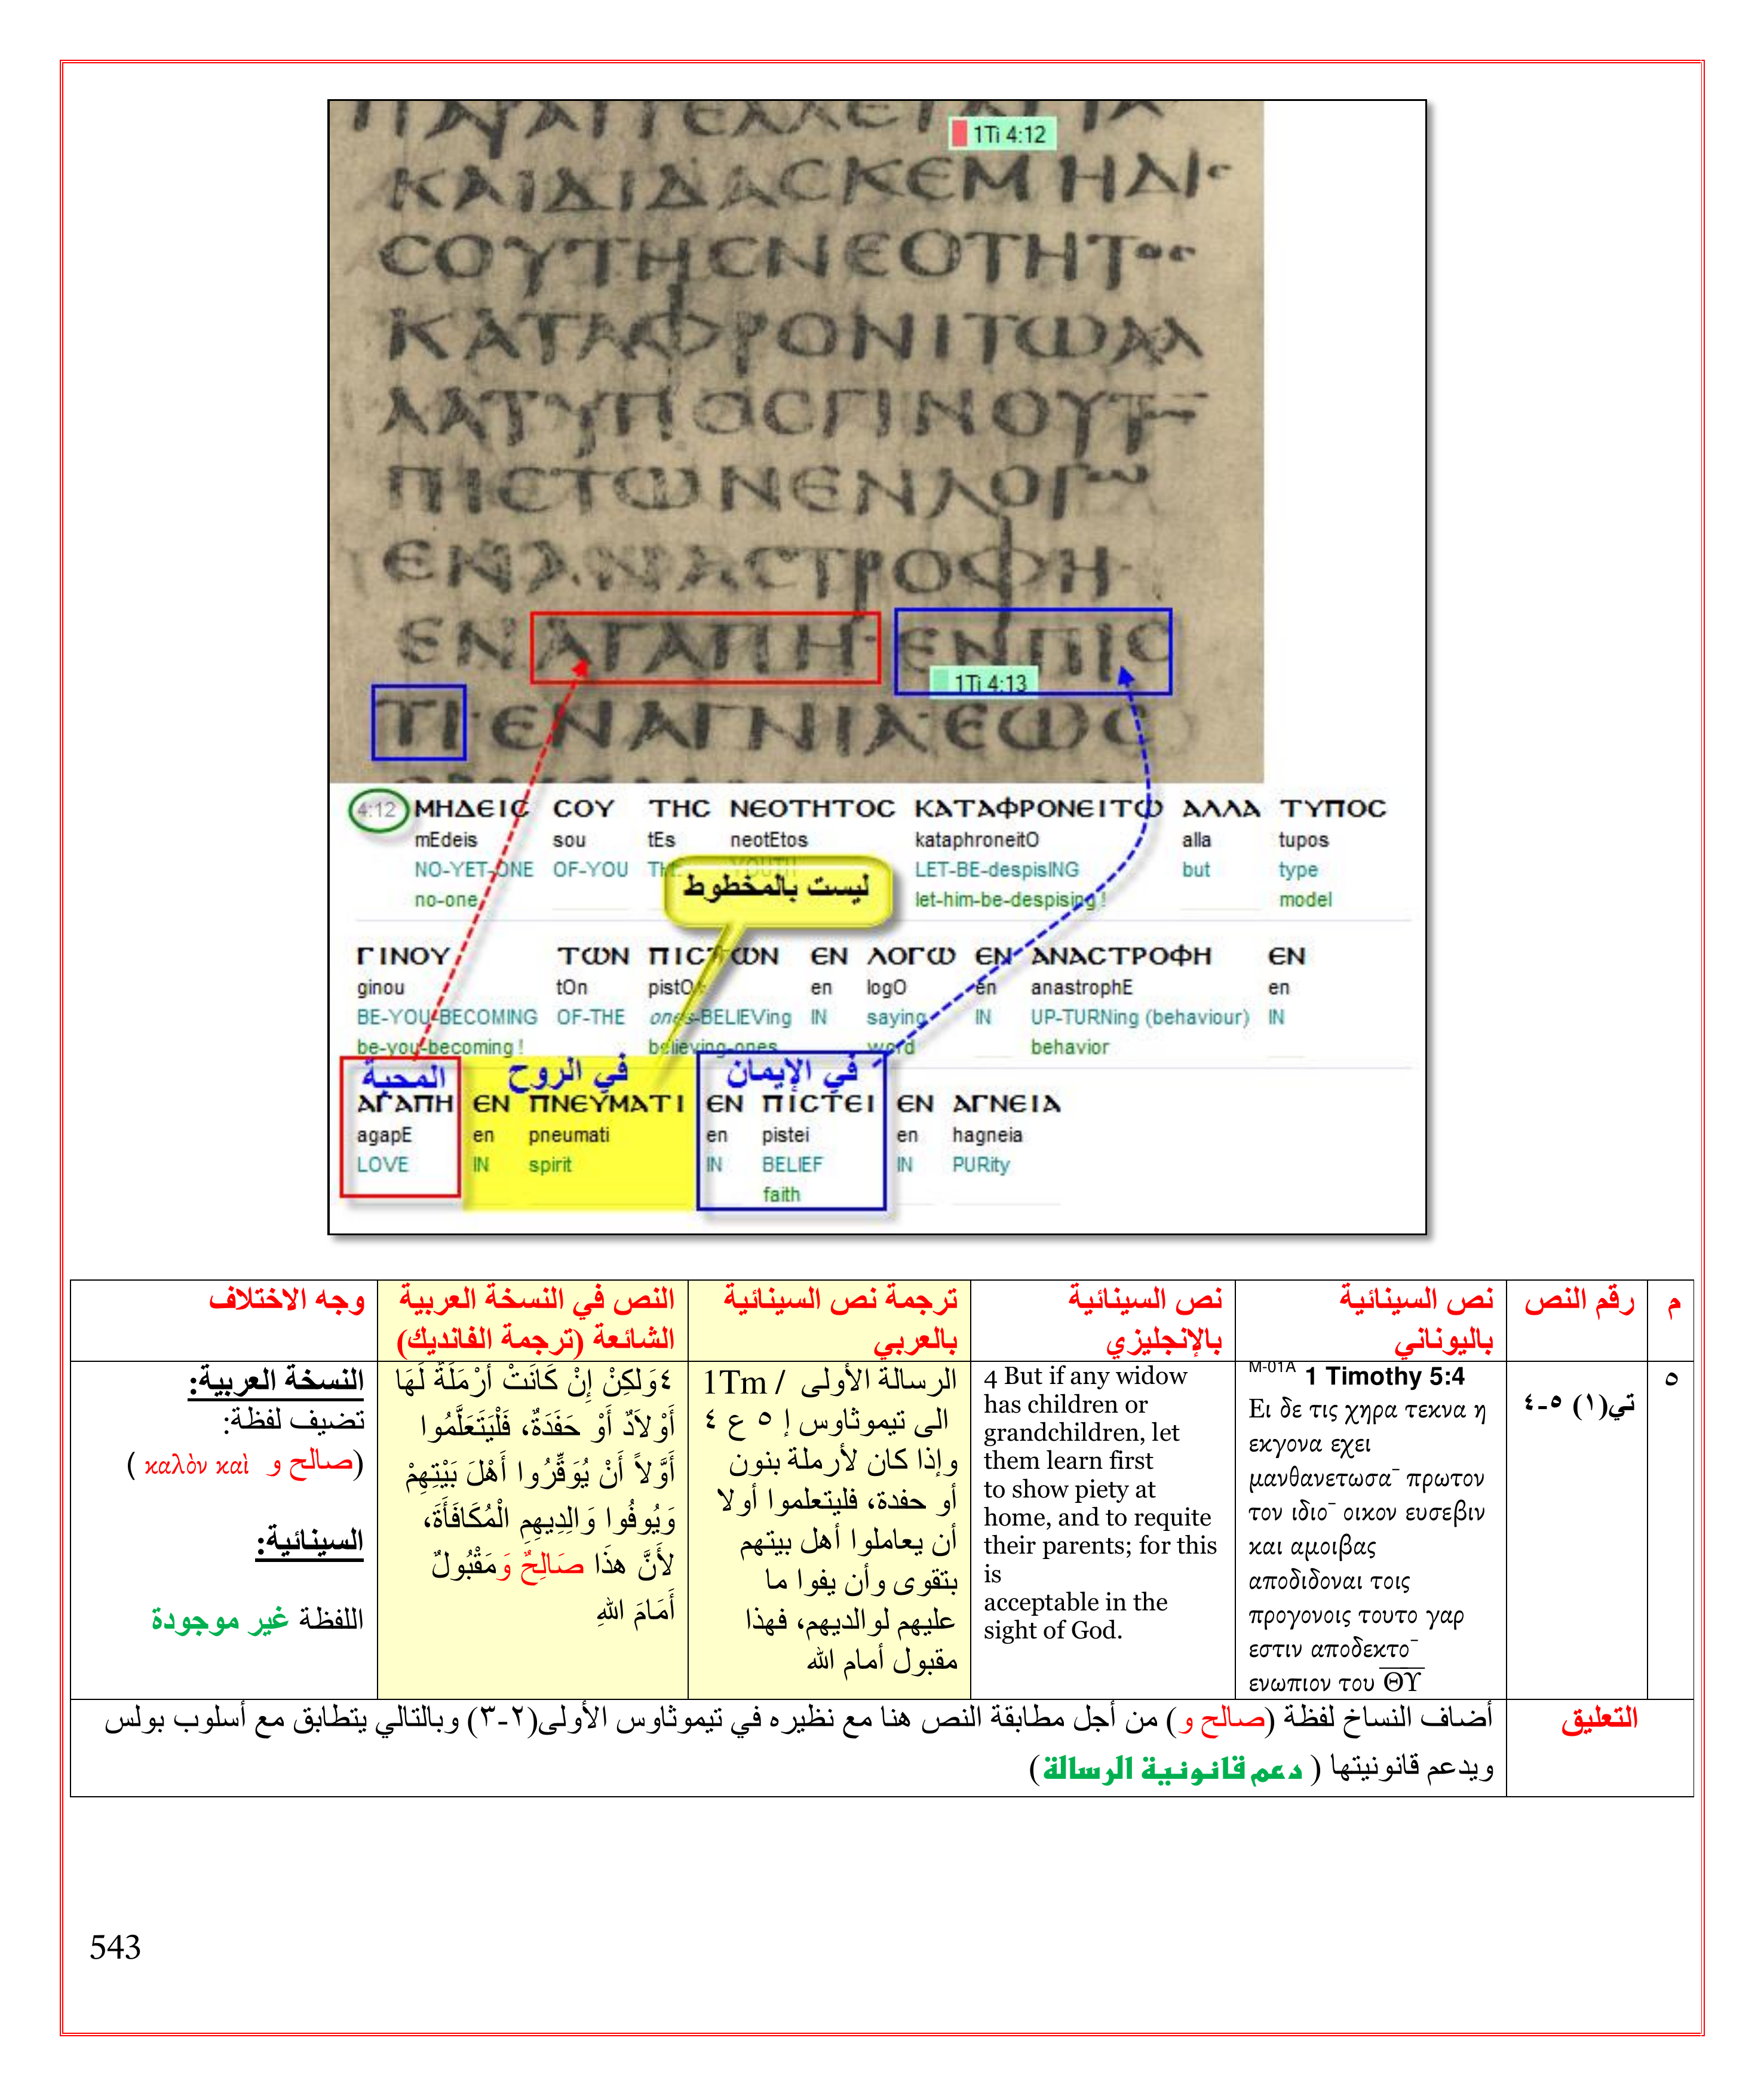 1Ti 4:12
ΚΑΙΔΙΔΑϹΚΕΜΗΔΙϹ
ϹΟΥΤΗϹΝΕΟΤΗΤΟϹ
ΚΑΤΑΦΡΟΝΙΤΩΑΛ
ΛΑΤΥΠΟϹΓΙΝΟΥΤ
ΠΙϹΤΩΝΕΝΛΟΓΩ
ΕΝΑΝΑϹΤΡΟΦΗ·
ΕΝΑΓΑΠΗ·ΕΝΠΙϹ
1Ti 4:13
ΤΙ·ΕΝΑΓΝΙΑ·ΕΩϹ
4:12 ΜΗΔΕΙϹ ϹΟΥ ΤΗϹ ΝΕΟΤΗΤΟϹ ΚΑΤΑΦΡΟΝΕΙΤΩ ΑΛΛΑ ΤΥΠΟϹ
mEdeis sou tEs neotEtos kataphroneitO alla tupos
NO-YET-ONE OF-YOU THE YOUTH LET-BE-despisING but type
no-one let-him-be-despising ! model
ليست بالمخطوط
ΓΙΝΟΥ ΤΩΝ ΠΙϹΤΩΝ ΕΝ ΛΟΓΩ ΕΝ ΑΝΑϹΤΡΟΦΗ ΕΝ
ginou tOn pistOn en logO en anastrophE en
BE-YOU-BECOMING OF-THE ones-BELIEVing IN saying IN UP-TURNing (behaviour) IN
be-you-becoming ! believing-ones word behavior
المحبة في الروح في الإيمان
ΑΓΑΠΗ ΕΝ ΠΝΕΥΜΑΤΙ ΕΝ ΠΙϹΤΕΙ ΕΝ ΑΓΝΕΙΑ
agapE en pneumati en pistei en hagneia
LOVE IN spirit IN BELIEF IN PURity
faith
م
رقم النص
نص السينائية
باليوناني
نص السينائية
بالإنجليزي
ترجمة نص السينائية
بالعربي
النص في النسخة العربية
الشائعة (ترجمة الفانديك)
وجه الاختلاف
٥
تي(١) ٥-٤
M-01A 1 Timothy 5:4
Ει δε τις χηρα τεκνα η
εκγονα εχει
μανθανετωσα¯ πρωτον
τον ιδιο¯ οικον ευσεβιν
και αμοιβας
αποδιδοναι τοις
προγονοις τουτο γαρ
εστιν αποδεκτο¯
ενωπιον του Θ̅Υ̅
4 But if any widow
has children or
grandchildren, let
them learn first
to show piety at
home, and to requite
their parents; for this
is
acceptable in the
sight of God.
1Tm / الرسالة الأولى
الى تيموثاوس إ ٥ ع ٤
وإذا كان لأرملة بنون
أو حفدة، فليتعلموا أولا
أن يعاملوا أهل بيتهم
بتقوى وأن يفوا ما
عليهم لوالديهم، فهذا
مقبول أمام الله
٤وَلكِنْ إِنْ كَانَتْ أَرْمَلَةٌ لَهَا
أَوْلاَدٌ أَوْ حَفَدَةٌ، فَلْيَتَعَلَّمُوا
أَوَّلاً أَنْ يُوَقِّرُوا أَهْلَ بَيْتِهِمْ
وَيُوفُوا وَالِدِيهِمِ الْمُكَافَأَةَ،
لأَنَّ هذَا صَالِحٌ وَمَقْبُولٌ
أَمَامَ اللهِ
النسخة العربية:
تضيف لفظة:
(صالح و καλὸν καὶ )
السينائية:
اللفظة غير موجودة
التعليق
أضاف النساخ لفظة (صالح و) من أجل مطابقة النص هنا مع نظيره في تيموثاوس الأولى(٢-٣) وبالتالي يتطابق مع أسلوب بولس
ويدعم قانونيتها ( دعم قانونية الرسالة)
543